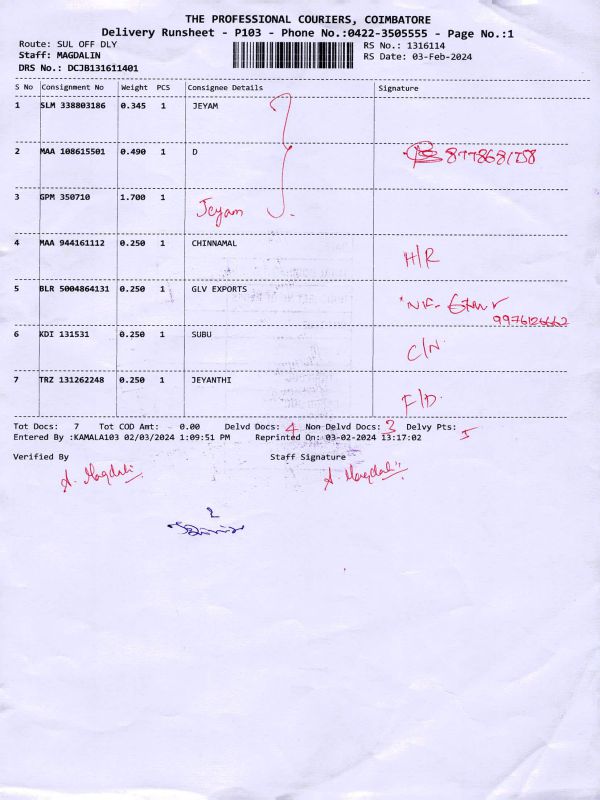 THE PROFESSIONAL COURIERS, COIMBATORE
Delivery Runsheet - P103 - Phone No.:0422-3505555 - Page No.:1
Route: SUL OFF DLY RS No.: 1316114
Staff: MAGDALIN RS Date: 03-Feb-2024
DRS No.: DCJB131611401
S No Consignment No Weight PCS Consignee Details Signature
1 SLM 338803186 0.345 1 JEYAM
2 MAA 108615501 0.490 1 D
3 GPM 350710 1.700 1 Jeyam
4 MAA 944161112 0.250 1 CHINNAMAL H/R
5 BLR 5004864131 0.250 1 GLV EXPORTS
9976126662
6 KDI 131531 0.250 1 SUBU C/N
7 TRZ 131262248 0.250 1 JEYANTHI F/D
Tot Docs: 7 Tot COD Amt: 0.00 Delvd Docs: 4 Non Delvd Docs: 3 Delvy Pts:
Entered By :KAMALA103 02/03/2024 1:09:51 PM Reprinted On: 03-02-2024 13:17:02
Verified By Staff Signature
A. Magdali A. Magdali